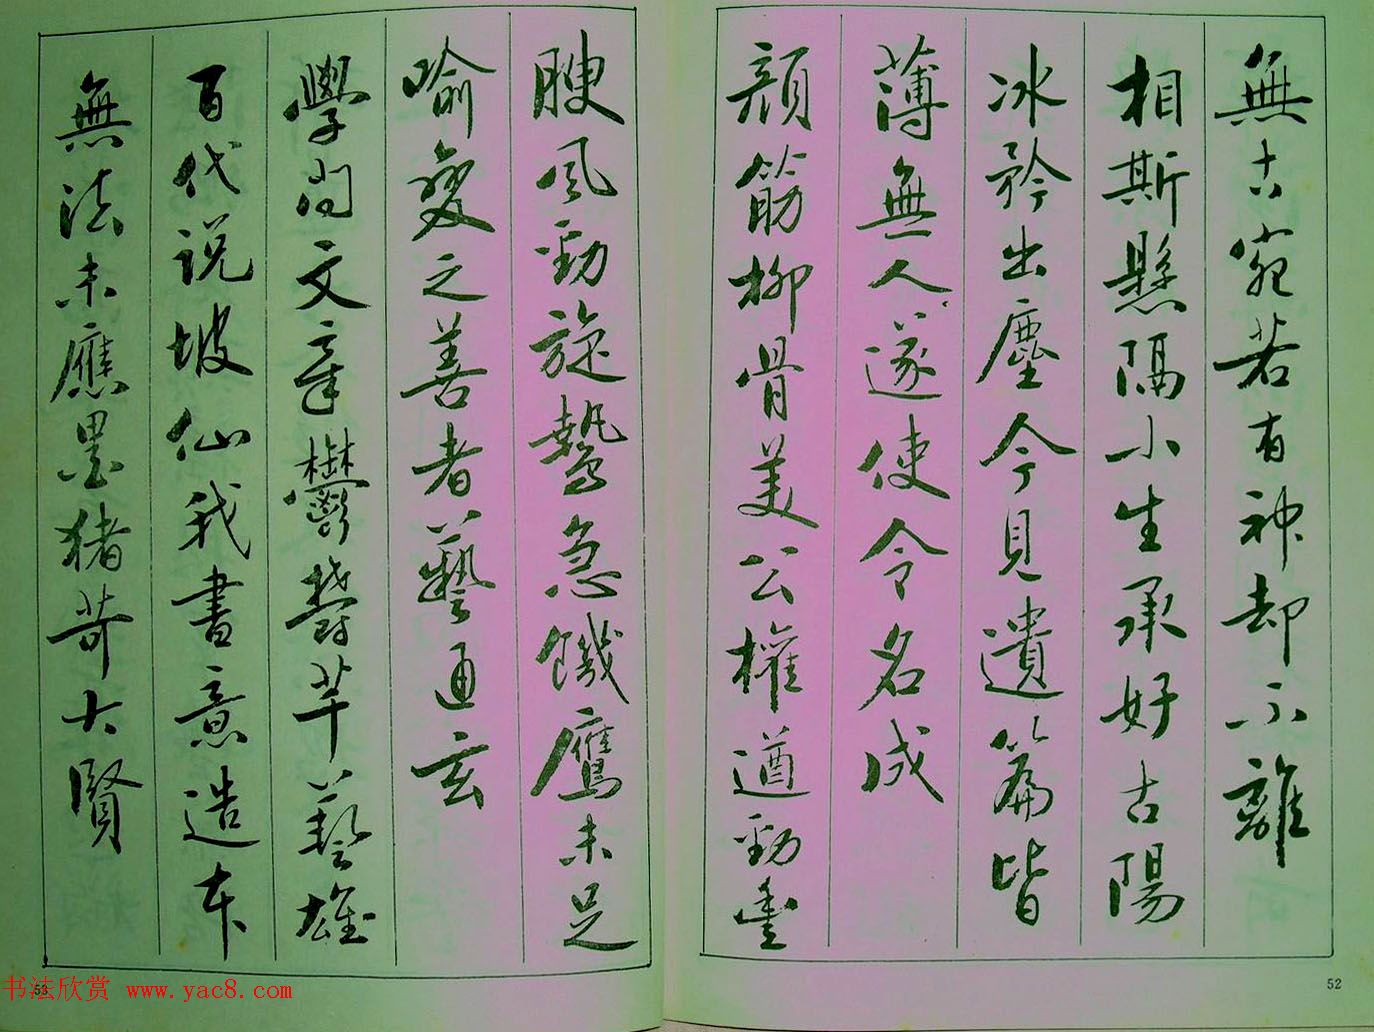 無古宛若有神却不離
相斯懸隔小生承好古陽
冰矜出塵今見遺篇皆
薄無人遂使令名成
顔筋柳骨美公權遒勁豐
腴風勁旋鷙急饑鷹未足
喻變之善者藝通玄
學問文章鬱欝芊藝雄
百代说坡仙我書意造本
無法未應墨猪苛大賢
52
53
书法欣赏 www.yac8.com